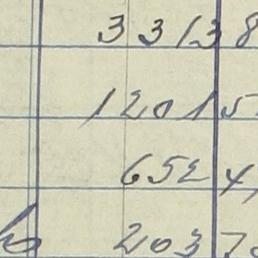 33138
12015
6524
20370